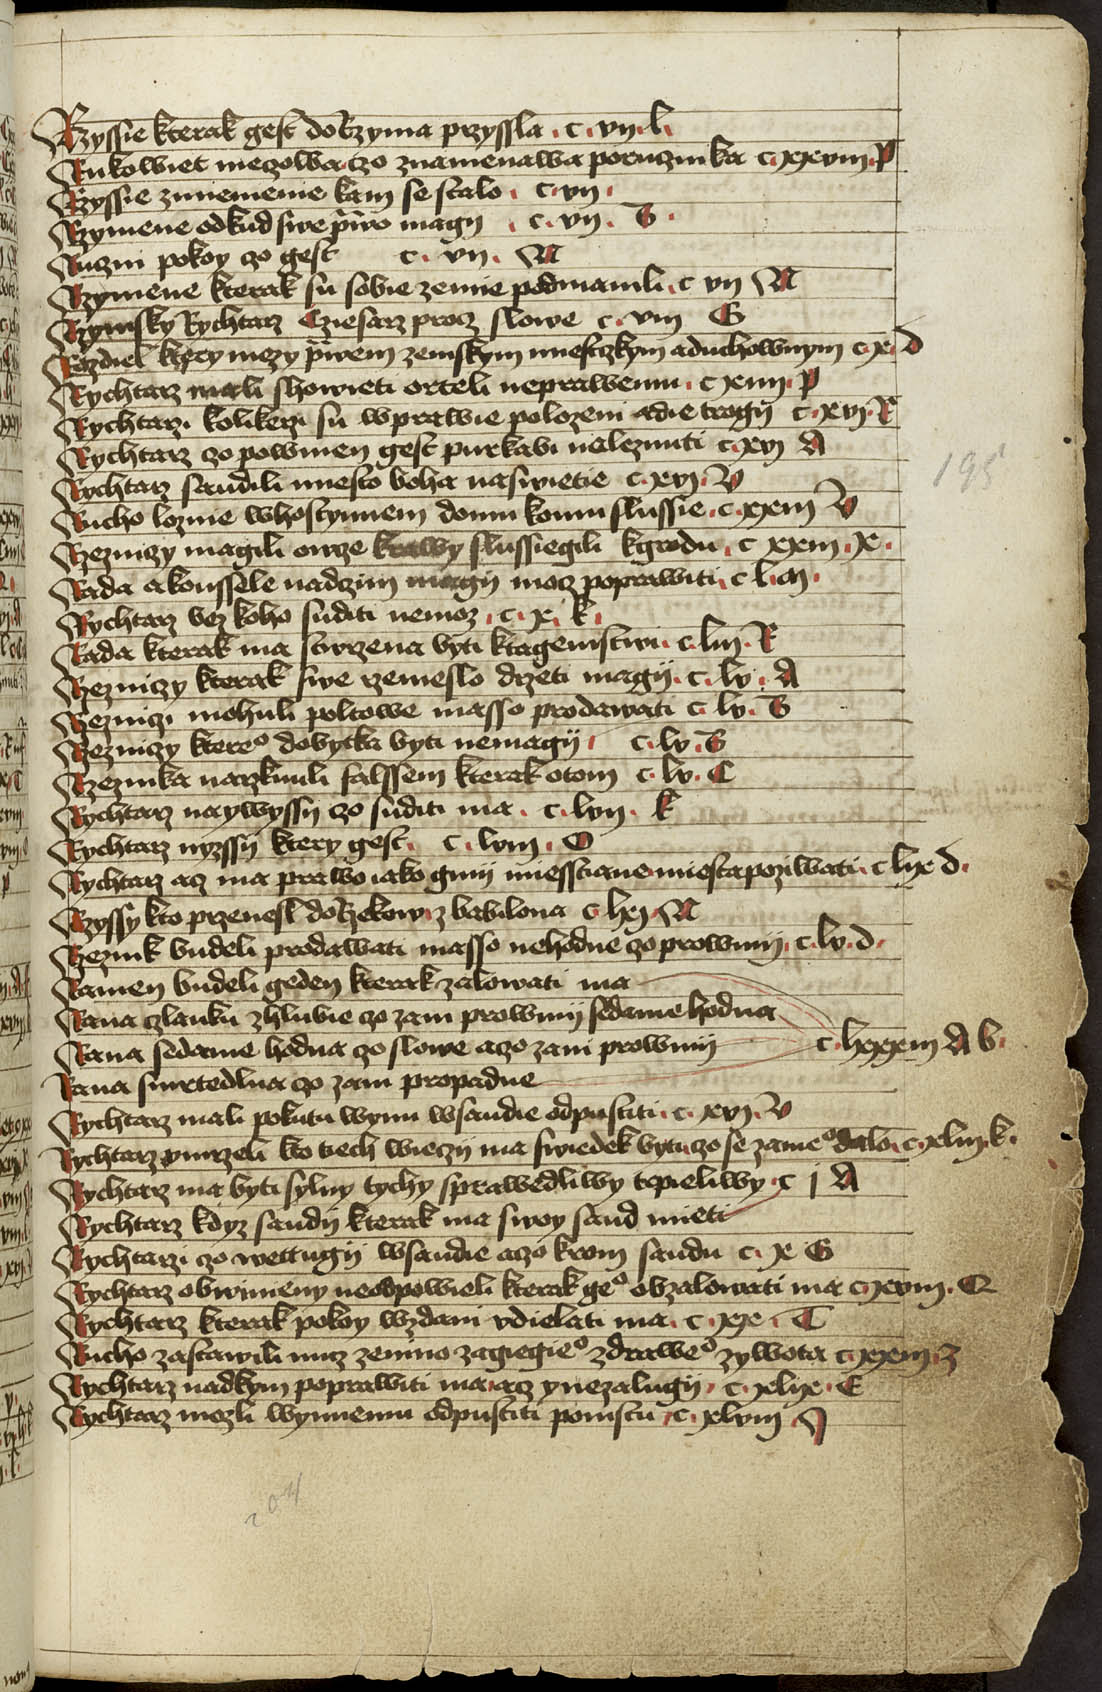 Rzyssie kterak gest dorzyma przyssla . c . vij . l .
Rukowiet mezowa czo znamenawa poruczinka c . xxviij . P
Rzyssie zmienienie kam se stalo . c . vij .
Rzymene odkud swe p̃wo magij . c . vij . B .
Ruczni pokoy czo gest c . vij . M
Rzymene kterak su sobie zemie podmanili . c vij M
Rzymsky Rychtarz Cziesarz procz slowe c . viij G
Rozdiel ktery mezy p̃wem zemskym miestczkym aduchownym c . x . d
Rychtarz mali showieti orteli neprawemu . c xiiij . P
Rychtarzi kolikerzi su wprawie polozeni adie trogij c . xvj . R
Rychtarz czo powinen gest purkrabi naleznuti c . xvj A
Rychtarz saudili miesto boha naswietie c . xvj . V
Rucho loznie whostynniem domu komu slussie . c . xxiij V
Rzezniczy magili owcze krawy slussiegili kgradu . c xxiij . x .
Rada akonssele nadczim magij mocz poprawiti . c lij .
Rychtarz bez koho suditi nemoz . c . x . k .
Rada kterak ma stwrzena byti ktagemstwi . c . liij . R
Rzezniczy kterak swe rzemeslo drzeti magij . c . lv . A
Rzezniczi mohuli poltowe masso prodawati c . lv . B
Rzezniczy ktereº dobytka byti nemagij . c . lv . B
Rzeznika narzknuli falssem kterak otom c . lv . C
Rychtarz naywyssij czo suditi ma . c . lvij . k
Rychtarz nyzssij ktery gest . c . lviij . O
Rychtarz acz ma prawo iako ginij miesstiane miesta pozywati . c lix d .
Rzyssy kto przenesl dorzekow z babilona c . lxj M
Rzeznik budeli prodawati masso nehodne czo prowinij . c . lv . d .
Ranien budeli geden kterak zalowati ma
Rana czlanku zhlubie czo zani prowinij sedanie hodna
Rana sedanie hodna czo slowe aczo zani prowinij c . lxxxiij A b .
Rana smrtedlna czo zani propadne
Rychtarz mali pokutu wynu wsaudie odpustiti . c . xvj . V
Rychtarz vmrzeli kto tiech wieczij ma swiedek byti czo se zanieº dalo . c . xliij . k .
Rychtarz ma byti sylny tychy sprawedliwy trpieliwy . c j A
Rychtarz kdyz saudij kterak ma swoy saud mieti
Rychtarzi czo wettugij wsaudie aczo krom saudu c . x G
Rychtarz obwinieny neodpowieli kterak geº obzalowati ma c xviij . Q
Rychtarz kterak pokoy wzdani vdielati ma . c . xx . T
Rucho zastawili muz zenino zagiegieº zdraweº zywota c . xxiij . Z
Rychtarz nadkym poprawiti ma acz ynezalugij . c . xlix . E
Rychtarz mozli wynnemu odpustiti pomstu . c . xlviij .
195
204